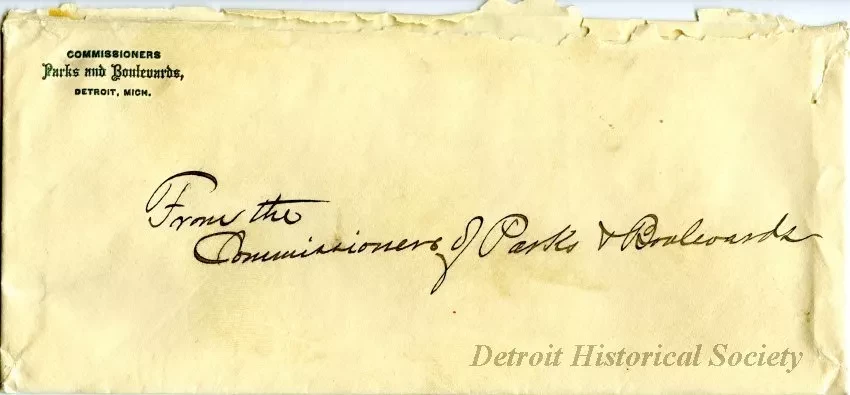 COMMISSIONERS
Parks and Boulevards,
DETROIT, MICH.
From the
Commissioners of Parks & Boulevards
Detroit Historical Society